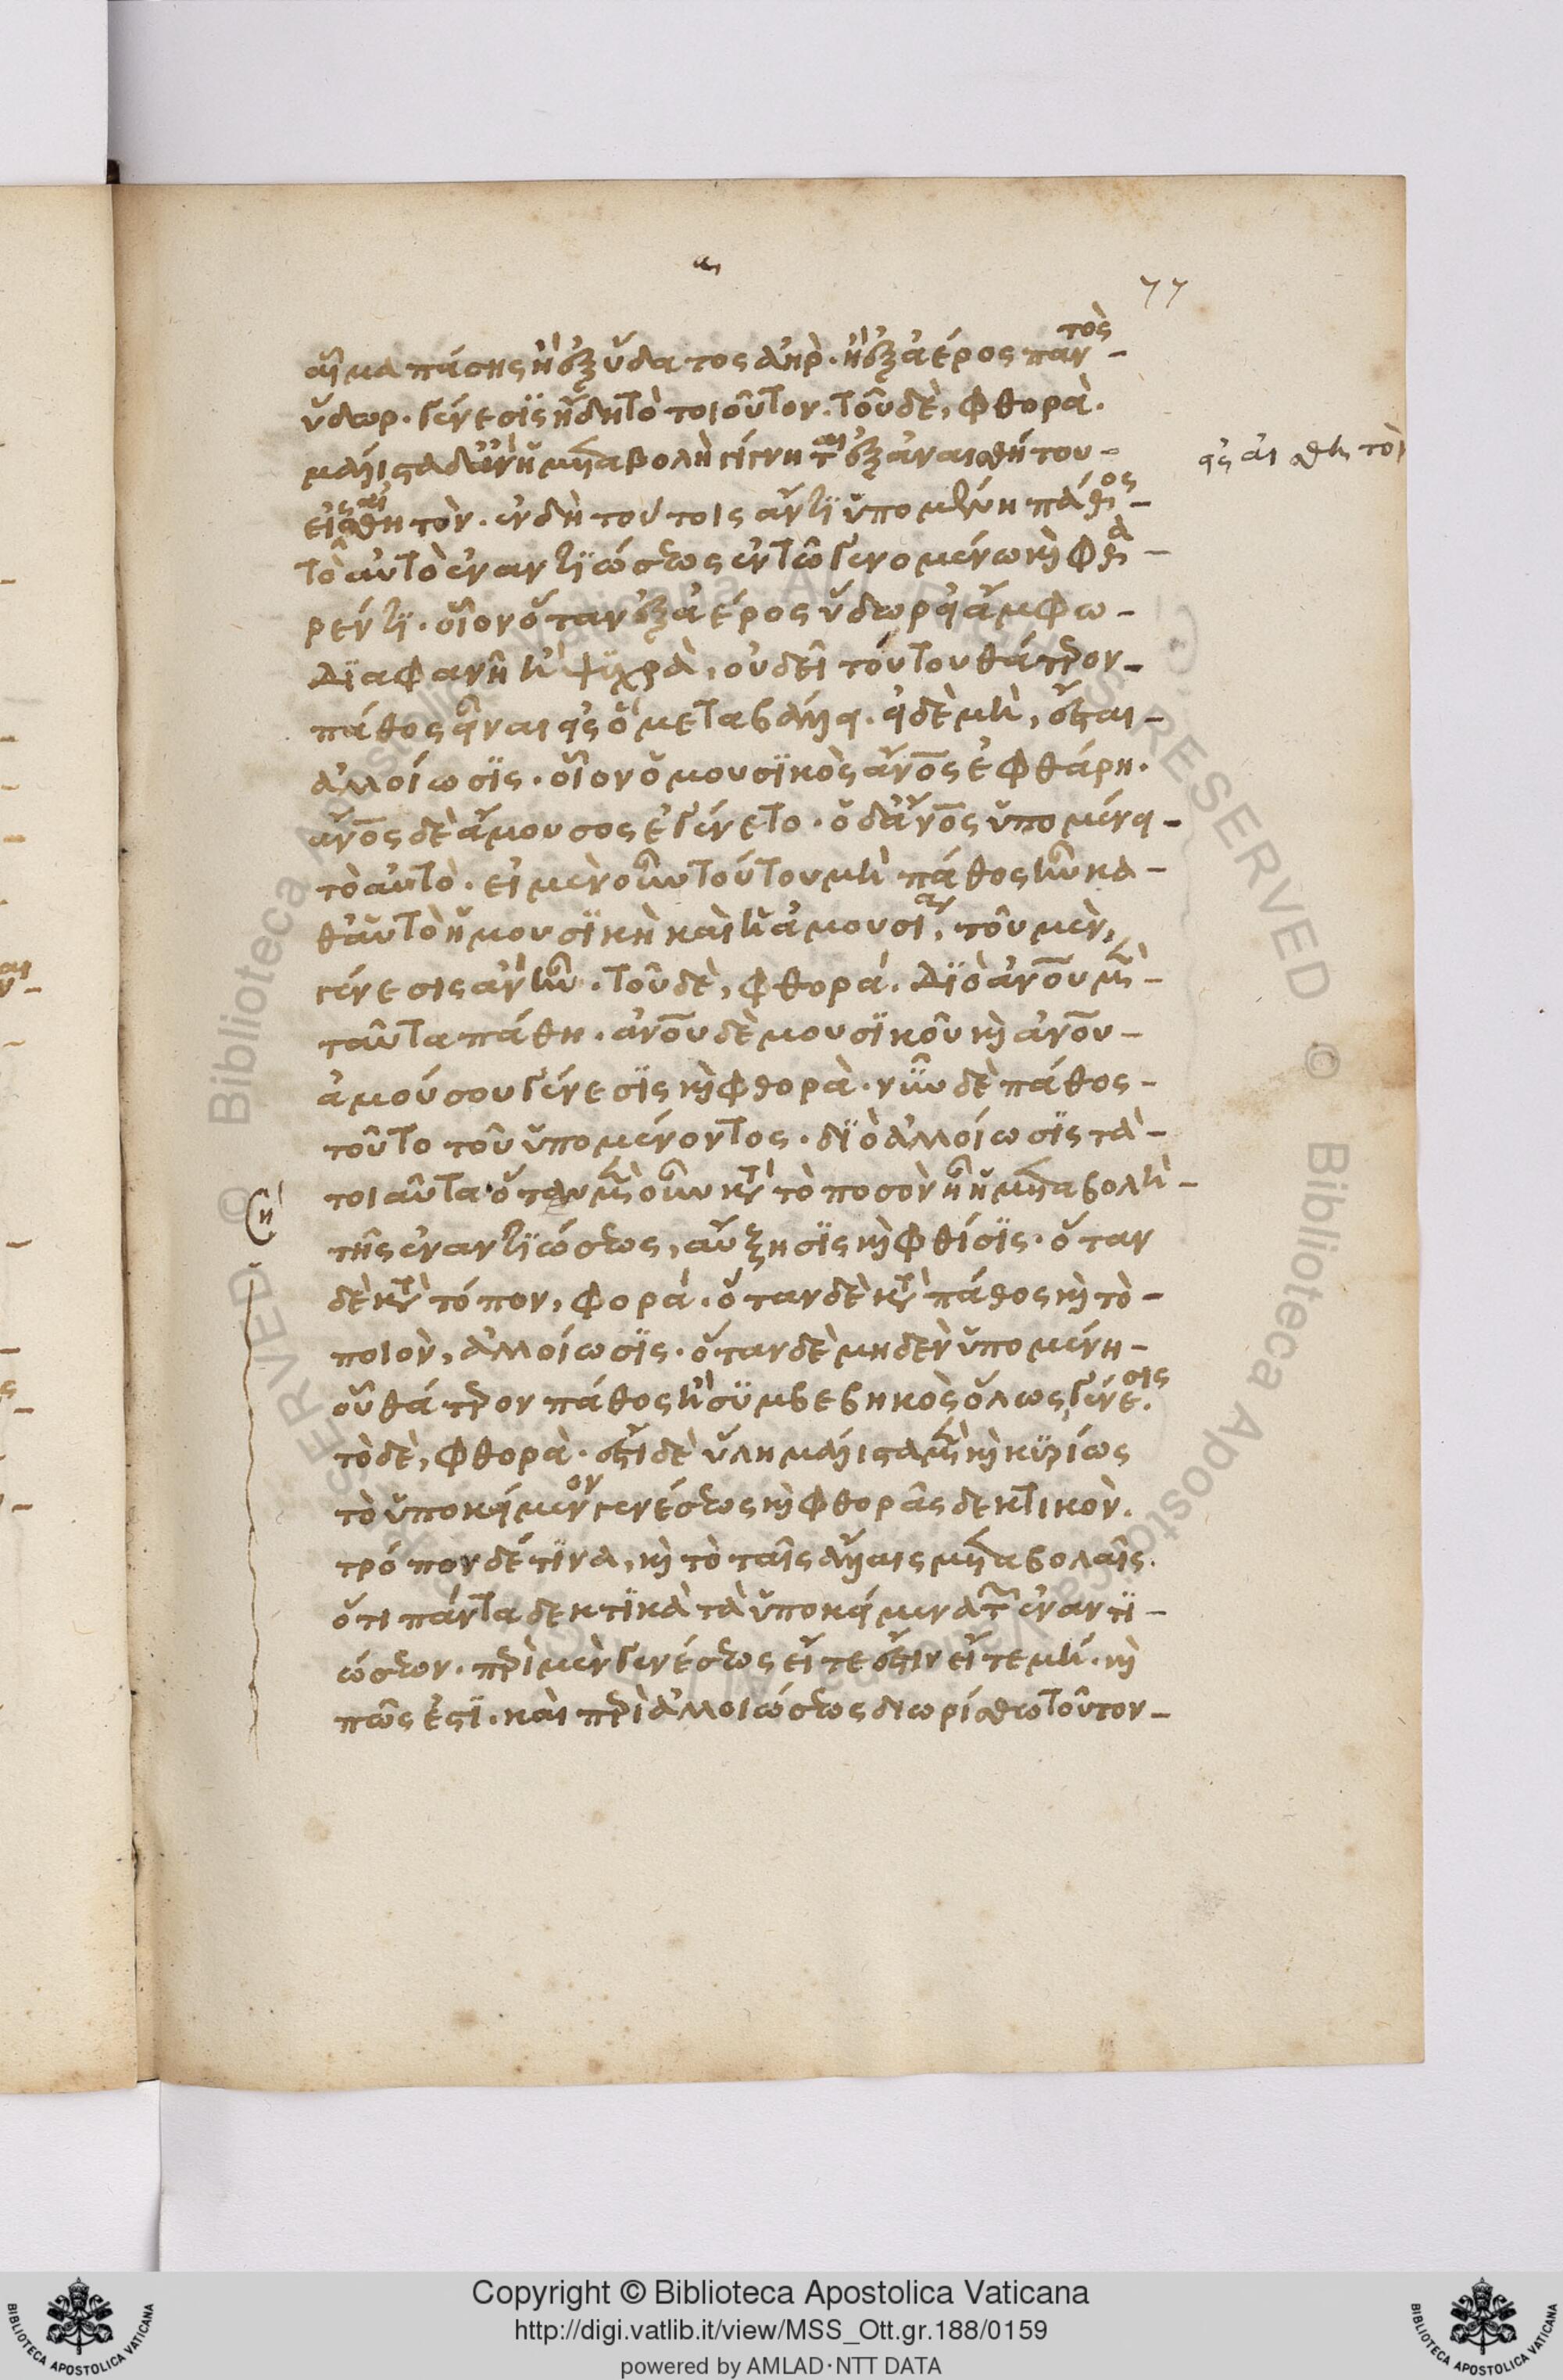 77
αἷμα πάσης ἢ ἐξ ὕδατος ἀὴρ. ἢ ἐξ ἀέρος παντὸς
ὕδωρ. γένεσϊς ἤδη τὸ τοιοῦτον. τοῦ δὲ, φθορὰ.
μάλιστα δ' ἂν ἡ μεταβολὴ γίγνηται ἐξ ἀναισθήτου
εἰς αἰσθητὸν.
εἰς αἰσθητὸν
ἐν δὴ τούτοις ἄν τϊ ὑπομένη πάθος
τὸ αὐτὸ ἐναντϊώσεως ἐν τῶ γενομένω καὶ φθα
ρέντϊ. οἷον ὅταν ἐξ ἀέρος ὕδωρ εἰ ἄμφω
δϊαφανῆ ἢ ψϋχρὰ, οὐ δεῖ τούτου θάτερον
πάθος εἶναι εἰς ὃ μεταβάλλει. εἰ δὲ μὴ, ἔσται
ἀλλοίωσϊς. οἷον ὁ μουσϊκὸς ἄνος ἐφθάρη.
ἄνος δὲ ἄμουσος ἐγένετο. ὁ δ' ἄνος ὑπομένει
τὸ αὐτὸ. εἰ μὲν οὖν τούτου μὴ πάθος ἦν κα
θ' αὑτὸ ἡ μουσϊκὴ καὶ ἡ ἀμουσία, τοῦ μὲν,
γένεσις ἂν ἦν. τοῦ δὲ, φθορά. δϊὸ ἀνου μὲν
ταῦτα πάθη. ἀνου δὲ μουσϊκοῦ καὶ ἀνου
ἀμούσου γένεσϊς καὶ φθορὰ. νῦν δὲ πάθος
τοῦτο τοῦ ὑπομένοντος. δϊὸ ἀλλοίωσϊς τὰ
τοιαῦτα. ὅταν μὲν οὖν κατὰ τὸ ποσὸν ἦ ἡ μεταβολὴ
τῆς ἐναντϊώσεως, αὔξησϊς καὶ φθίσϊς. ὅταν
δὲ κατὰ τόπον, φορά. ὅταν δὲ κατὰ πάθος καὶ τὸ
ποιὸν, ἀλλοίωσϊς. ὅταν δὲ μηδὲν ὑπομένη
οὗ θάτερον πάθος ἢ σϋμβεβηκὸς ὅλως, γένεσις.
τὸ δὲ, φθορὰ. ἔστι δὲ ὕλη μάλιστα μὲν καὶ κϋρίως
τὸ ὑποκείμενον γενέσεως καὶ φθορᾶς δεκτικὸν.
τρόπον δέ τϊνα, καὶ τὸ ταῖς ἄλλαις μεταβολαῖς.
ὅτι πάντα δεκτϊκὰ τὰ ὑποκείμενα τῶν ἐναντϊ
ώσεων. περὶ μὲν γενέσεως εἴτε ἔστιν εἴτε μή. καὶ
πῶς ἐστϊ. καὶ περὶ ἀλλοιώσεως διωρίσθω τοῦτον
© Biblioteca Apostolica Vaticana. ALL RIGHTS RESERVED
Copyright © Biblioteca Apostolica Vaticana
http://digi.vatlib.it/view/MSS_Ott.gr.188/0159
powered by AMLAD·NTT DATA
BIBLIOTECA APOSTOLICA VATICANA
BIBLIOTECA APOSTOLICA VATICANA